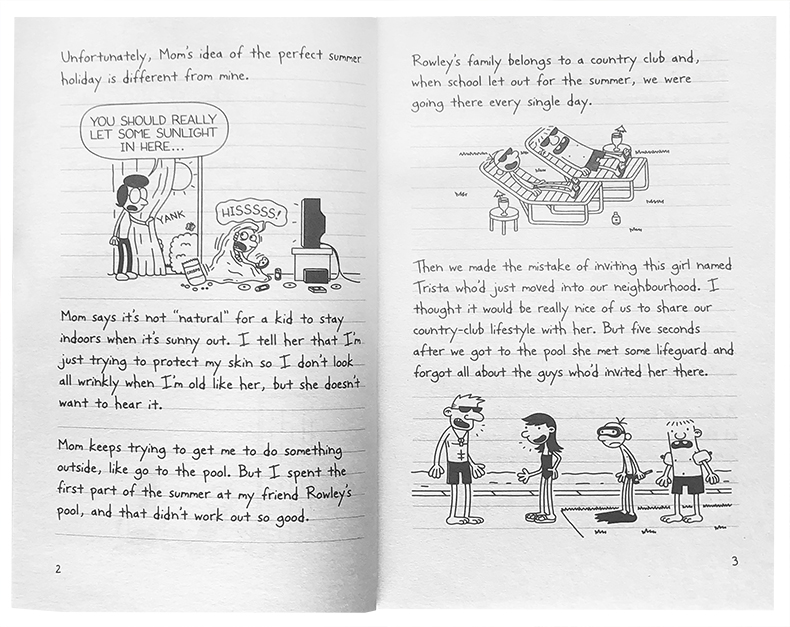 Unfortunately, Mom's idea of the perfect summer
holiday is different from mine.
YOU SHOULD REALLY
LET SOME SUNLIGHT
IN HERE...
YANK
HISSSSS!
Mom says it's not "natural" for a kid to stay
indoors when it's sunny out. I tell her that I'm
just trying to protect my skin so I don't look
all wrinkly when I'm old like her, but she doesn't
want to hear it.
Mom keeps trying to get me to do something
outside, like go to the pool. But I spent the
first part of the summer at my friend Rowley's
pool, and that didn't work out so good.
2
Rowley's family belongs to a country club and,
when school let out for the summer, we were
going there every single day.
Then we made the mistake of inviting this girl named
Trista who'd just moved into our neighbourhood. I
thought it would be really nice of us to share our
country-club lifestyle with her. But five seconds
after we got to the pool she met some lifeguard and
forgot all about the guys who'd invited her there.
3